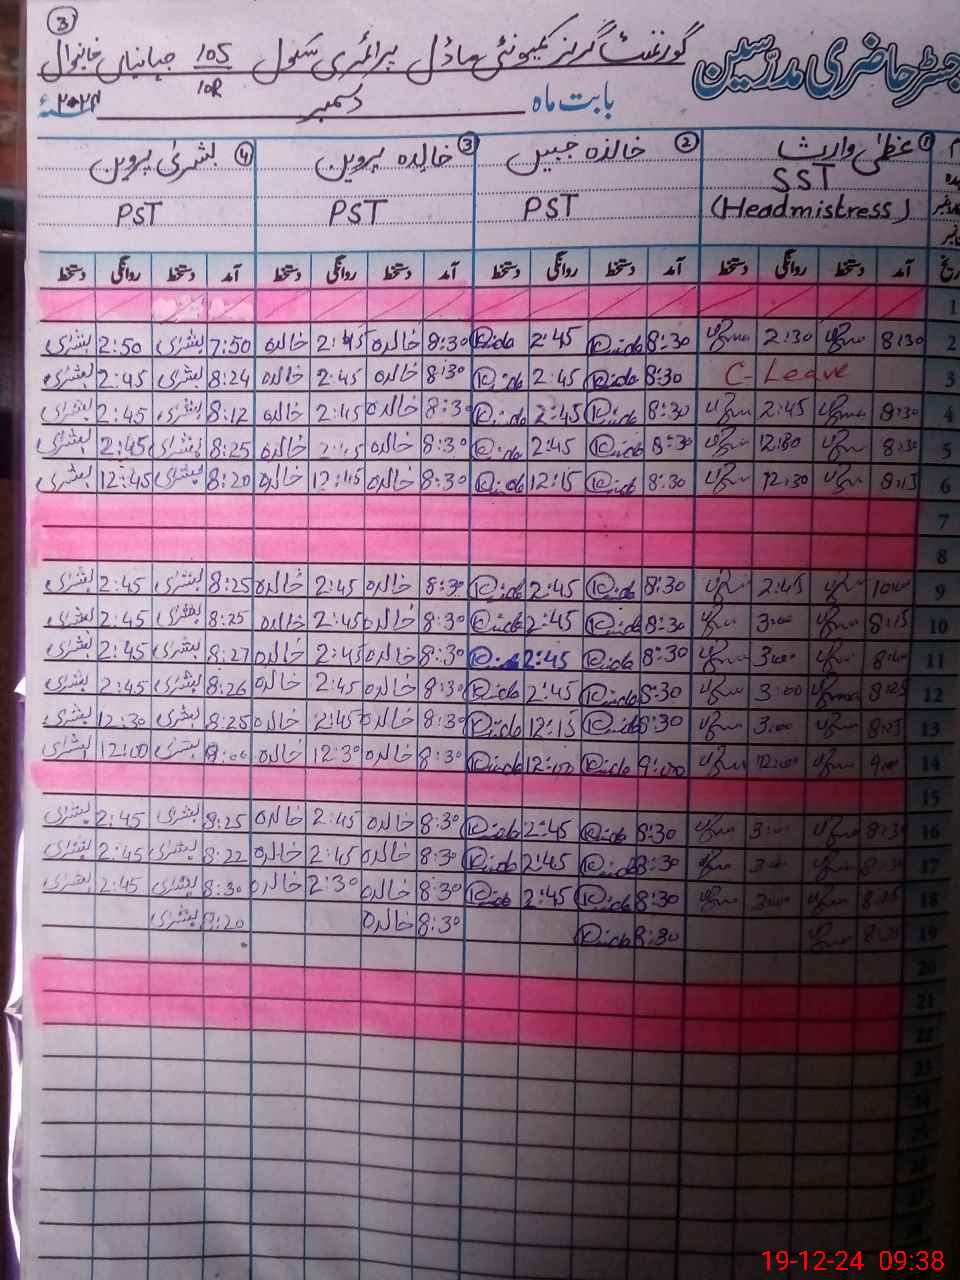 ③
رجسٹر حاضری مدرسین
گورنمنٹ گرلز کمیونٹی ماڈل پرائمری سکول 105/10R جہانیاں خانیوال
بابت ماہ دسمبر ۲۰۲۴ء
① عظمیٰ وارث ② خالدہ جبیں ③ خالدہ پروین ④ بشریٰ پروین
SST PST PST PST
(Headmistress)
تاریخ آمد دستخط روانگی دستخط آمد دستخط روانگی دستخط آمد دستخط روانگی دستخط آمد دستخط روانگی دستخط
1
2 8:30 2:30 8:30 2:45 8:30 خالدہ 2:45 خالدہ 7:50 بشریٰ 2:50 بشریٰ
3 C-Leave 8:30 2:45 8:30 خالدہ 2:45 خالدہ 8:24 بشریٰ 2:45 بشریٰ
4 8:30 2:45 8:30 2:45 8:30 خالدہ 2:45 خالدہ 8:12 بشریٰ 2:45 بشریٰ
5 8:30 12:30 8:30 2:45 8:30 خالدہ 2:45 خالدہ 8:25 بشریٰ 2:45 بشریٰ
6 8:15 12:30 8:30 12:15 8:30 خالدہ 12:45 خالدہ 8:20 بشریٰ 12:45 بشریٰ
7
8
9 2:45 8:30 2:45 8:30 خالدہ 2:45 خالدہ 8:25 بشریٰ 2:45 بشریٰ
10 8:15 3:00 8:30 2:45 8:30 خالدہ 2:45 خالدہ 8:25 بشریٰ 2:45 بشریٰ
11 3:00 8:30 2:45 8:30 خالدہ 2:45 خالدہ 8:27 بشریٰ 2:45 بشریٰ
12 8:25 3:00 8:30 2:45 8:30 خالدہ 2:45 خالدہ 8:26 بشریٰ 2:45 بشریٰ
13 8:25 3:00 8:30 12:15 8:30 خالدہ 2:45 خالدہ 8:25 بشریٰ 12:30 بشریٰ
14 9:00 12:00 9:00 12:00 8:30 خالدہ 12:30 خالدہ 9:00 بشریٰ 12:00 بشریٰ
15
16 8:30 3:00 8:30 2:45 8:30 خالدہ 2:45 خالدہ 8:25 بشریٰ 2:45 بشریٰ
17 8:30 3:00 8:30 2:45 8:30 خالدہ 2:45 خالدہ 8:22 بشریٰ 2:45 بشریٰ
18 8:25 3:00 8:30 2:45 8:30 خالدہ 2:30 خالدہ 8:30 بشریٰ 2:45 بشریٰ
19 8:30 8:30 خالدہ 8:20 بشریٰ
20
21
22
23
24
25
26
27
28
19-12-24 09:38